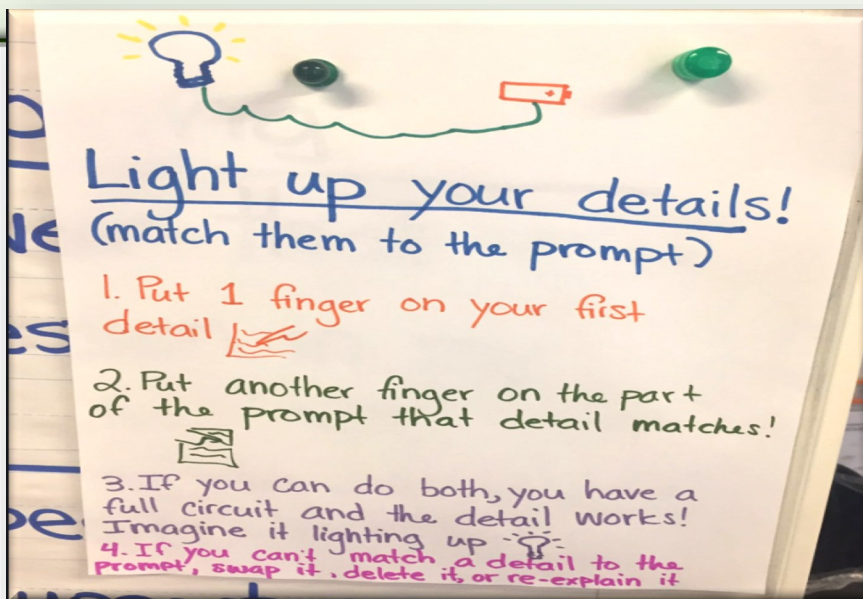 Light up your details!
(match them to the prompt)
1. Put 1 finger on your first
detail
2. Put another finger on the part
of the prompt that detail matches!
3. If you can do both, you have a
full circuit and the detail works!
Imagine it lighting up
4. If you can't match a detail to the
prompt, swap it, delete it, or re-explain it